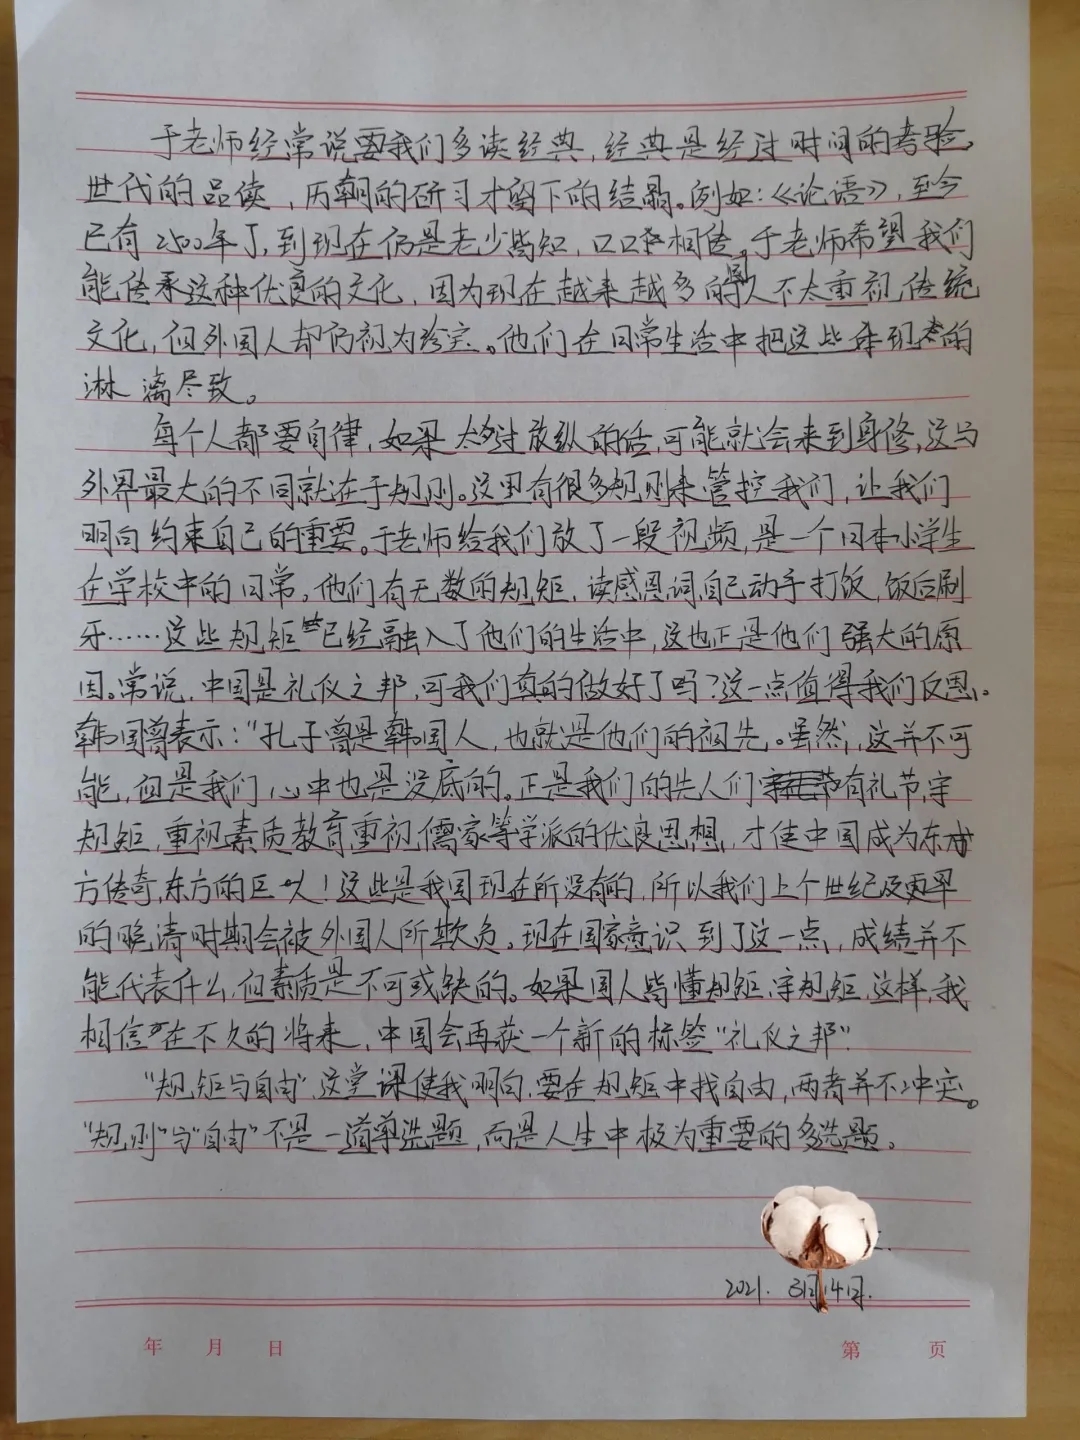 于老师经常说要我们多读经典，经典是经过时间的考验、
世代的品读，历朝的研习才留下的结晶。例如：《论语》，至今
已有2500年了，到现在仍是老少皆知，口口相传。于老师希望我们
能传承这种优良的文化，因为现在越来越多的国人不太重视传统
文化，但外国人却仍视为珍宝。他们在日常生活中把这些体现的
淋漓尽致。
每个人都要自律，如果太过放纵的话，可能就会来到身修，这与
外界最大的不同就在于规则。这里有很多规则来管控我们，让我们
明白约束自己的重要。于老师给我们放了一段视频，是一个日本小学生
在学校中的日常。他们有无数的规矩，读感恩词，自己动手打饭，饭后刷
牙……这些规矩已经融入了他们的生活中，这也正是他们强大的原
因。常说，中国是礼仪之邦，可我们真的做好了吗？这一点值得我们反思。
韩国曾表示："孔子曾是韩国人，也就是他们的祖先。虽然，这并不可
能，但是我们心中也是没底的。正是我们的先人们有礼节，守
规矩，重视素质教育，重视儒家等学派的优良思想，才使中国成为东
方传奇，东方的巨人！这些是我国现在所没有的，所以我们上个世纪及更早
的晚清时期会被外国人所欺负。现在国家意识到了这一点，成绩并不
能代表什么，但素质是不可或缺的。如果国人皆懂规矩，守规矩，这样，我
相信在不久的将来，中国会再获一个新的标签"礼仪之邦"
"规矩与自由"这堂课使我明白，要在规矩中找自由，两者并不冲突。
"规则"与"自由"不是一道单选题，而是人生中极为重要的多选题。
2021. 3月14日.
年 月 日 第 页